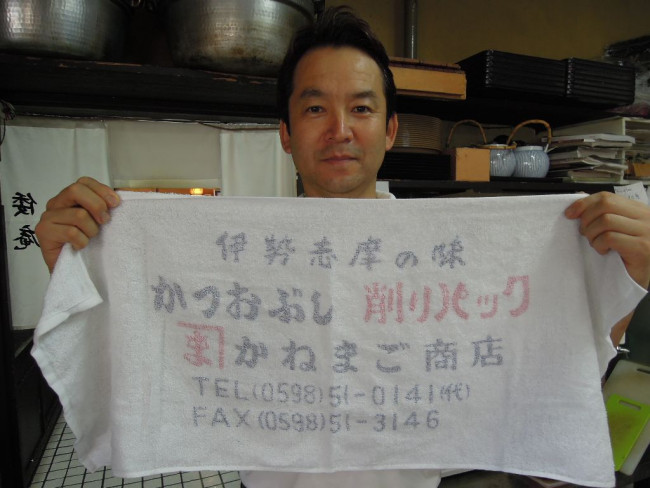 伊勢志摩の味
かつおぶし 削りパック
ま かねまご商店
TEL(0598)51-0141(代)
FAX(0598)51-3146
倭庵